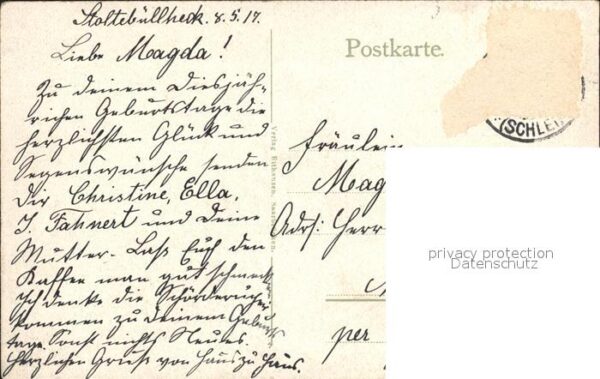 Stoltebüllheck. 8.5.17.
Liebe Magda!
Zu deinem diesjäh-
rigen Geburtstage die
herzlichsten Glück und
Segenswünsche senden
Dir Christine, Ella,
J. Fahnert und Deine
Mutter. Laß Euch den
Kaffee man gut schmeck
Ich denke die
kommen zu deinem Geburts
tage. Sonst nichts Neues.
Herzlichen Gruß von Haus zu Haus.
Postkarte.
(SCHLE
Fräulein
Mag
Adrs: Herr
per
privacy protection
Datenschutz